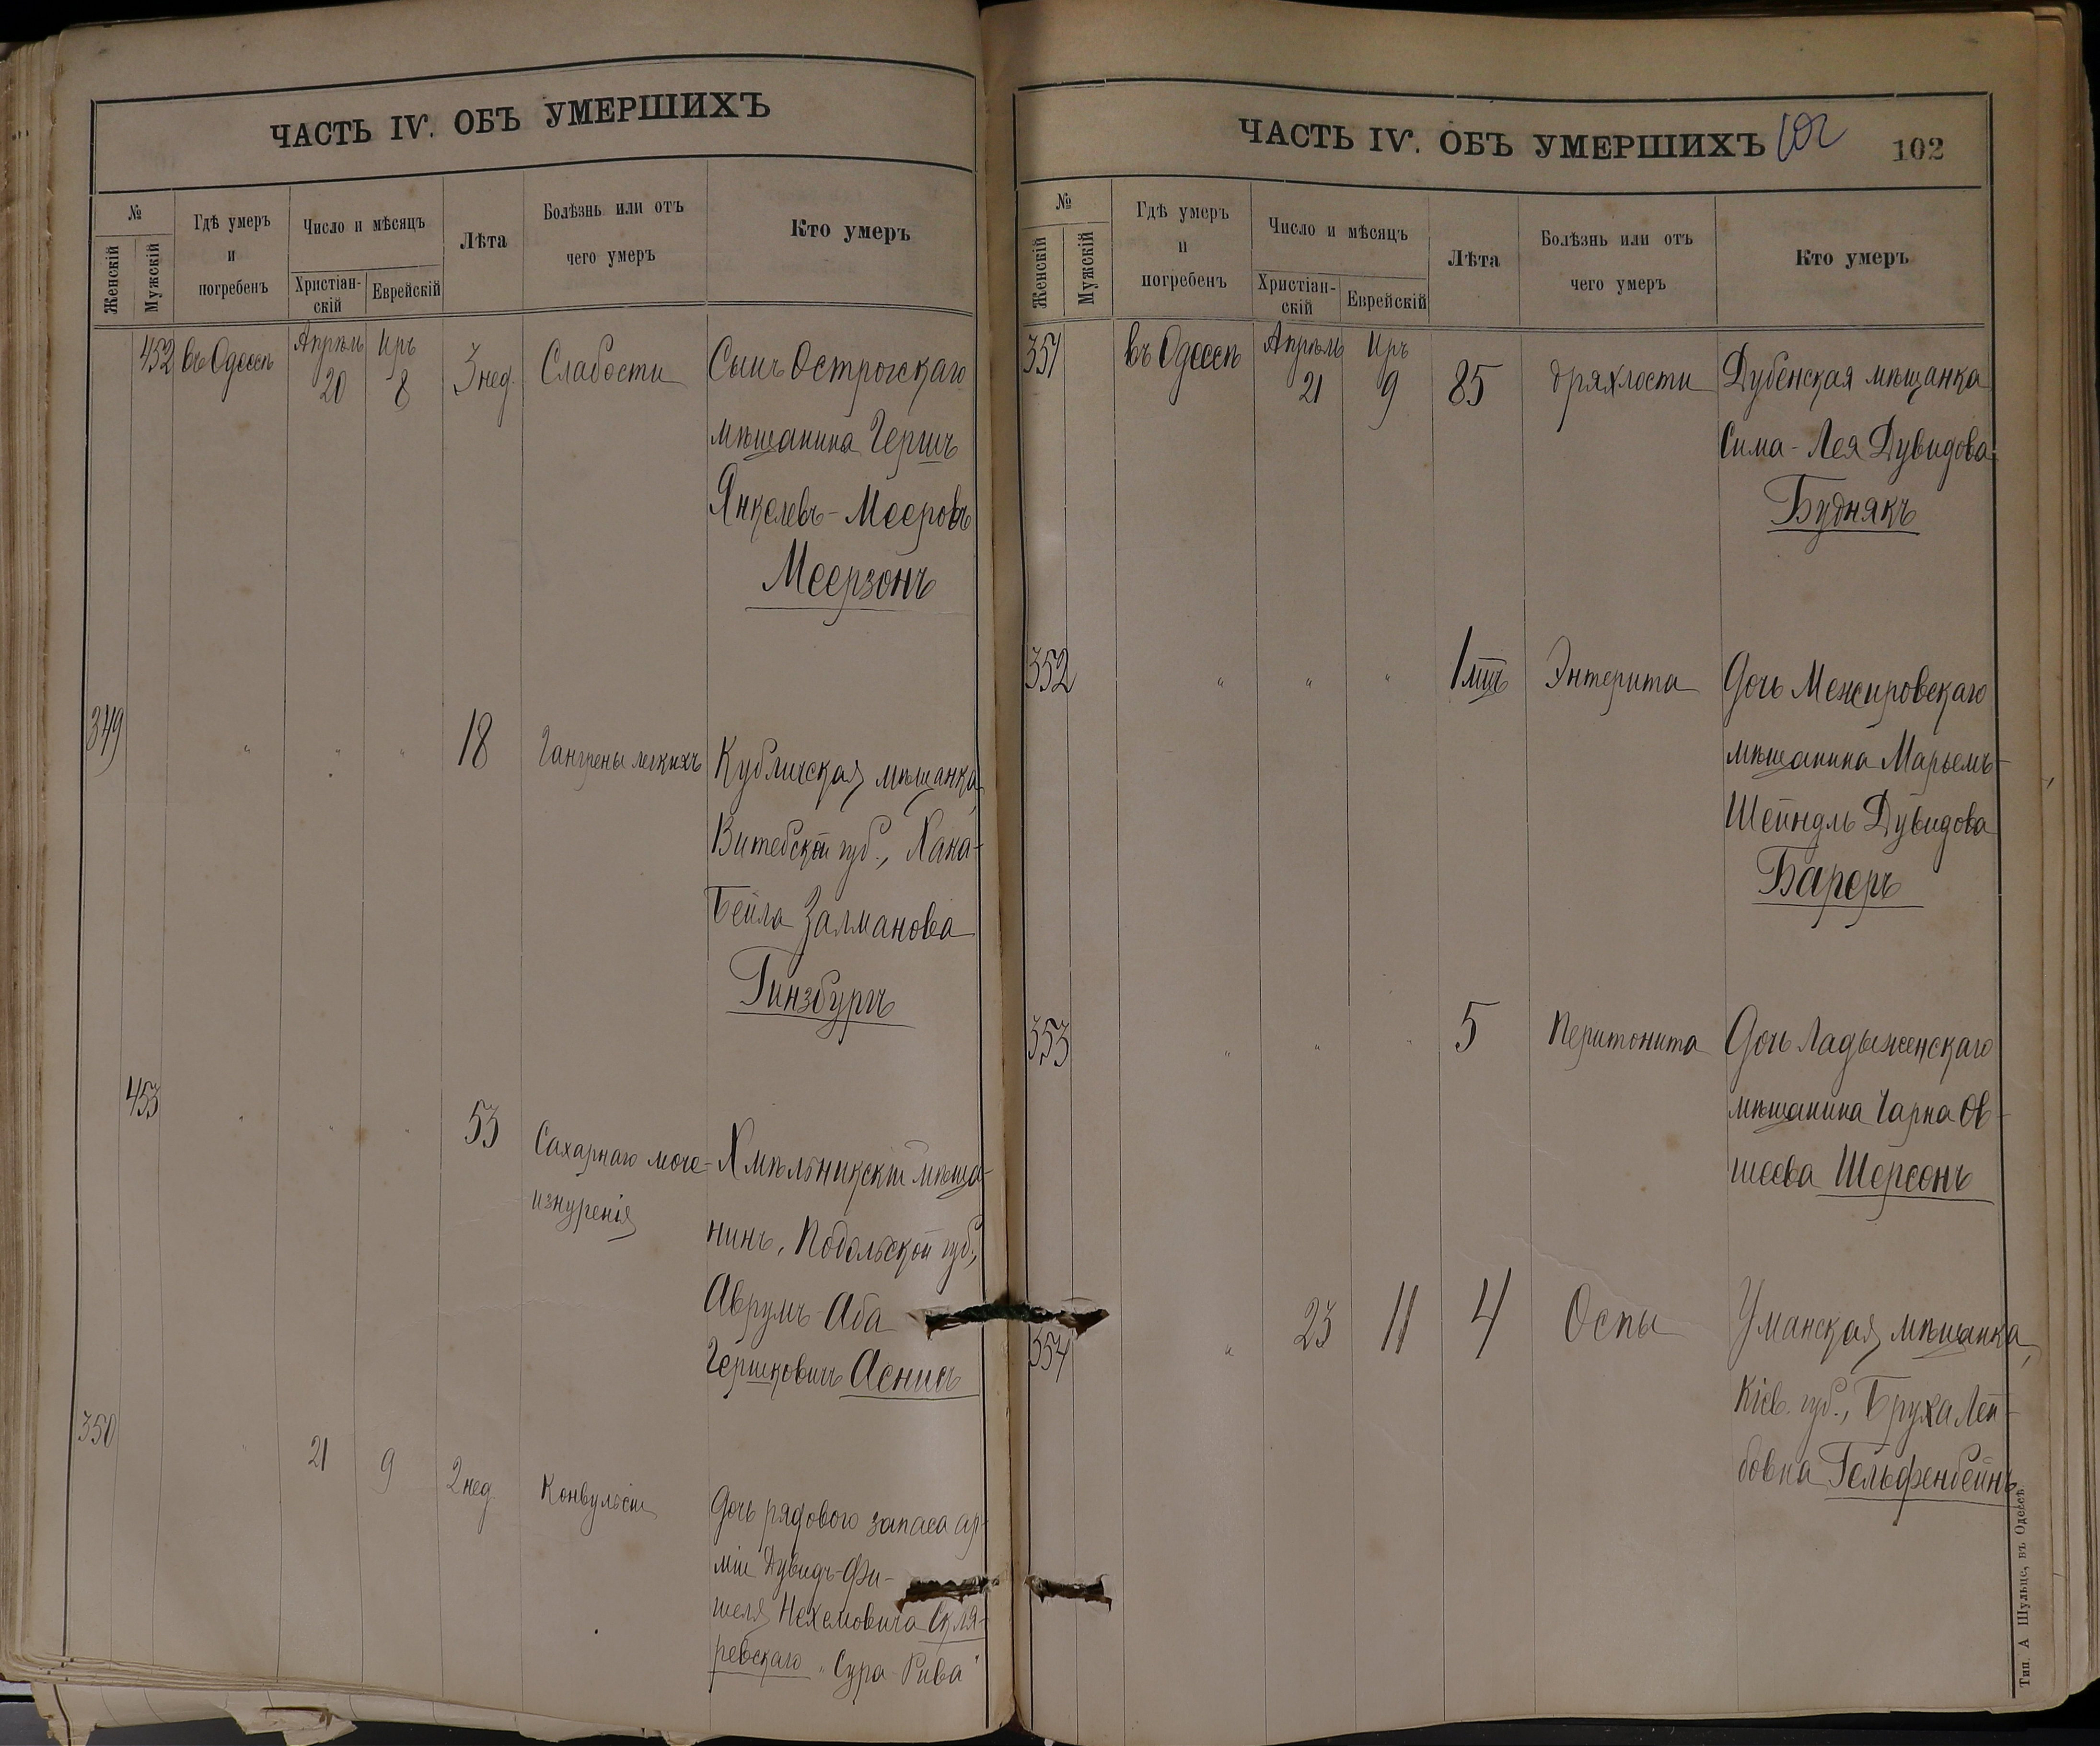 ЧАСТЬ IV. ОБЪ УМЕРШИХЪ
№
Женскій
Мужскій
Гдѣ умеръ
и
погребенъ
Число и мѣсяцъ
Христіан-
скій
Еврейскій
Лѣта
Болѣзнь или отъ
чего умеръ
Кто умеръ
452 въ Одессѣ Апрѣль Иръ
20 8 3 нед. Слабости Сынъ Острогскаго
мѣщанина Гершъ
Янкелевъ-Мееровъ
Меерзонъ
349 " " " 18 Гангрены легкихъ Кубличская мѣщанка,
Витебской губ., Хана-
Бейла Залманова
Гинзбургъ
453 " " " 53 Сахарнаго моче-
изнуренія
Хмѣльникскій мѣща-
нинъ, Подольской губ.,
Аврумъ-Аба
Гершковичъ Аснисъ
350 " 21 9 2 нед Конвульсіи Дочь рядового запаса ар-
міи Дувидъ-Фи-
шеля Нехемовича Скля-
ревскаго "Сура-Рива"
ЧАСТЬ IV. ОБЪ УМЕРШИХЪ 102 102
№
Женскій
Мужскій
Гдѣ умеръ
и
погребенъ
Число и мѣсяцъ
Христіан-
скій
Еврейскій
Лѣта
Болѣзнь или отъ
чего умеръ
Кто умеръ
351 въ Одессѣ Апрѣль Иръ
21 9 85 дряхлости Дубенская мѣщанка
Сима-Лея Дувидова
Буднякъ
352 " " " 1 мцъ Энтерита Дочь Межировскаго
мѣщанина Марьемъ-
Шейндль Дувидова
Бареръ
353 " " " 5 Перитонита Дочь Ладыженскаго
мѣщанина Чарна Ов-
шеева Шерсонъ
354 " 23 11 4 Оспы Уманская мѣщанка,
Кіев. губ., Бруха Лей-
бовна Гельфенбейнъ
Тип. А Шульце, въ Одессѣ.